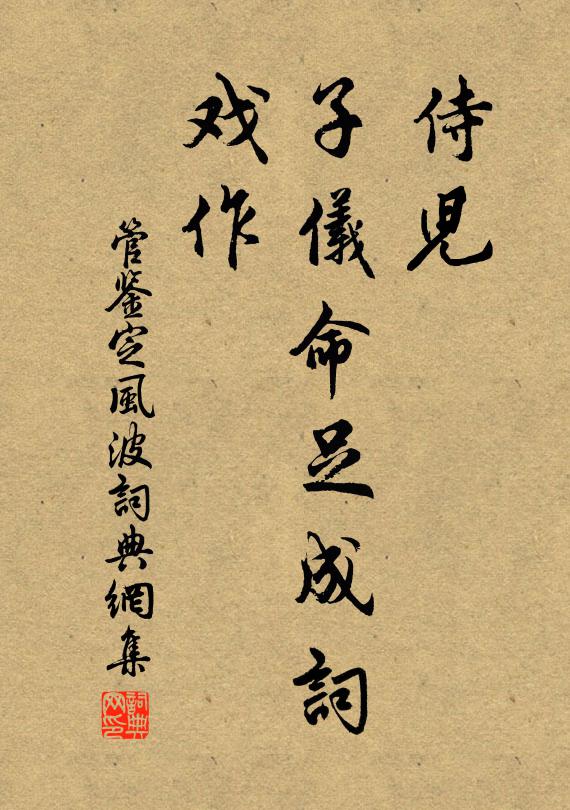 侍児
子儀命足成詞
戏作
管鉴定風波詞典網集
詞典网印